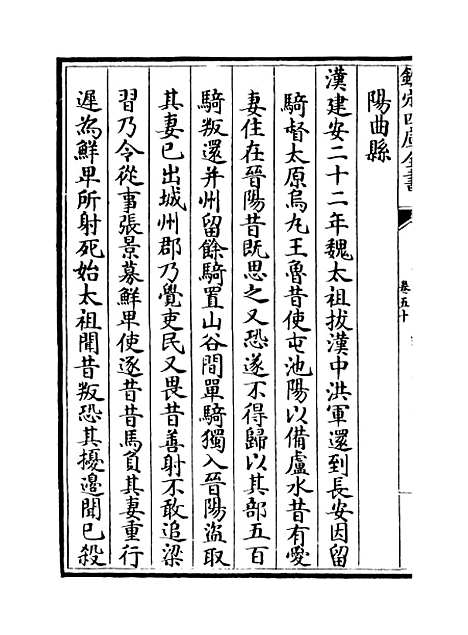 欽定四庫全書
卷五十
陽曲縣
漢建安二十二年魏太祖拔漢中洪軍還到長安因留
騎督太原烏九王魯昔使屯池陽以備盧水昔有愛
妻住在晉陽昔既思之又恐遂不得歸以其部五百
騎叛還并州留餘騎置山谷間單騎獨入晉陽盜取
其妻已出城州郡乃覺吏民又畏昔善射不敢追梁
習乃令從事張景募鮮卑使逐昔昔馬負其妻重行
遲為鮮卑所射死始太祖聞昔叛恐其擾邊聞已殺